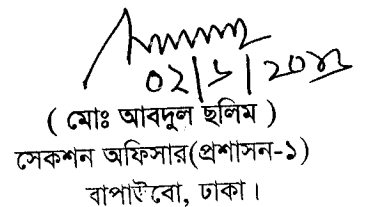 ০২/১/২০১৩
( মোঃ আবদুল ছলিম )
সেকশন অফিসার(প্রশাসন-১)
বাপাউবো, ঢাকা।